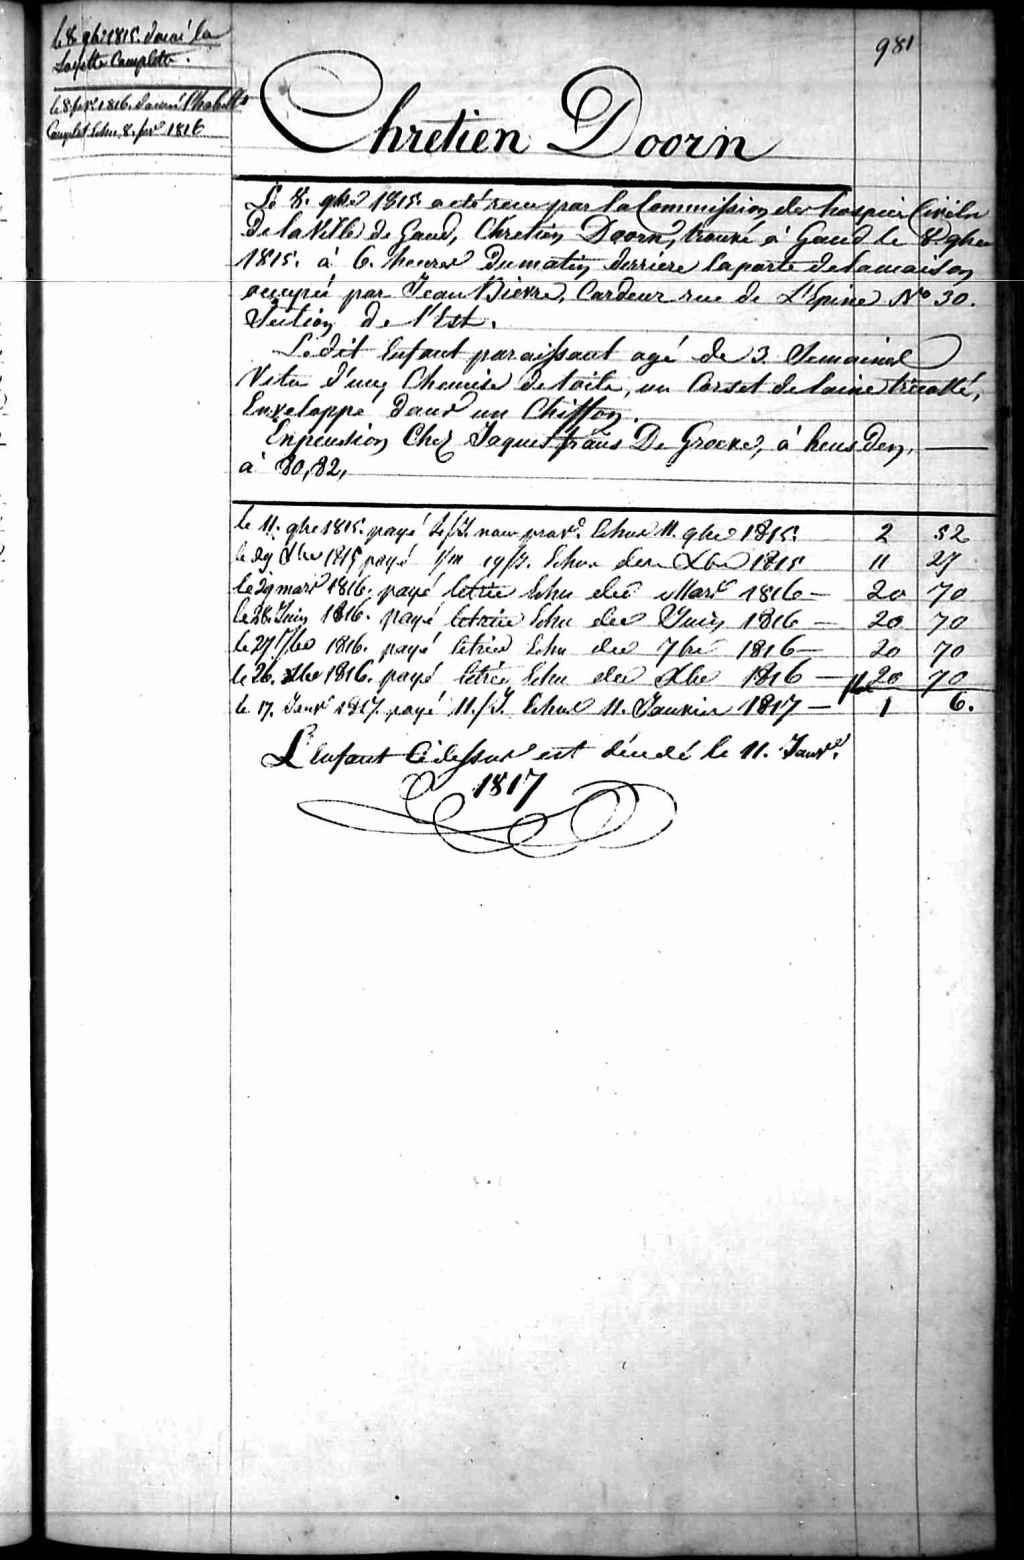 981
le 8 9bre 1815. donné la
Layette Complette.
le 8 fevr 1816. donné l'habillt
Complet Echu 8. fevr 1816
Chretien Doorn
Le 8. 9bre 1815. a été reçu par la Commission des hospices Civils
De la Ville de Gand, Chretien Doorn, trouvé à Gand le 8 9bre
1815. à 6. heures Du matin derriere la porte de la maison
occupée par Jean Bievre, Cardeur rue de L'Epine No 30.
Section de l'Est.
Ledit Enfant paraissant agé de 3 Semaines
Vetu d'une Chemise de toile, un Corset de laine tricotté,
Enveloppé dans un Chiffon.
En pension Chez Jaques frans De Groeve, à heusden,
à 80,82,
le 11. 9bre 1815. payé Echus 11. 9bre 1815. 2 52
le 29 Xbre 1815 payé 1/m 19/J. Echu Xbre 1815 11 27
le 29 mars 1816. payé letrie Echu de Mars 1816 — 20 70
le 28 Juin 1816. payé letrie Echu de Juin 1816 — 20 70
le 27 7bre 1816. payé letrie Echu de 7bre 1816 — 20 70
le 26. Xbre 1816. payé letrie Echu de Xbre 1816 — 20 70
le 17. Janvr 1817. payé 11./J. Echus 11. Janvier 1817 — 1 6.
L'Enfant Cidessus est décedé le 11. Janvr
1817